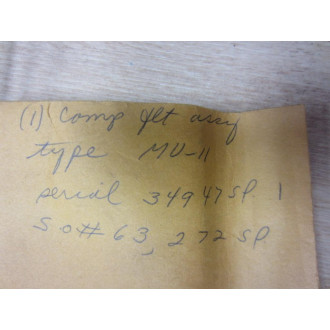 (1) Comp flt assy
type MU-11
serial 34947SP. 1
SO# 63,272SP